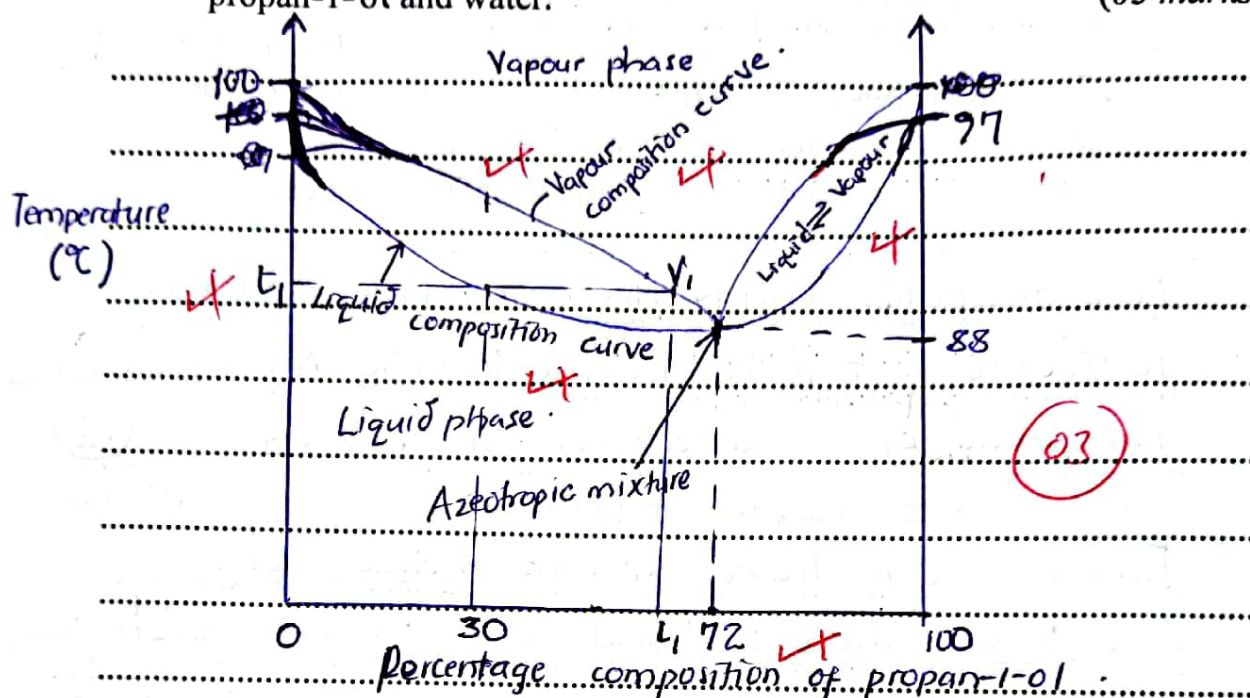 propan-1-ol and water.
(03 marks
Vapour phase
100
97
Vapour
composition curve.
Liquid ⇌ Vapour
Temperature
(°C)
t₁
V₁
Liquid
composition curve
88
Liquid phase.
03
Azeotropic mixture
0 30 L₁ 72 100
Percentage composition of propan-1-ol.